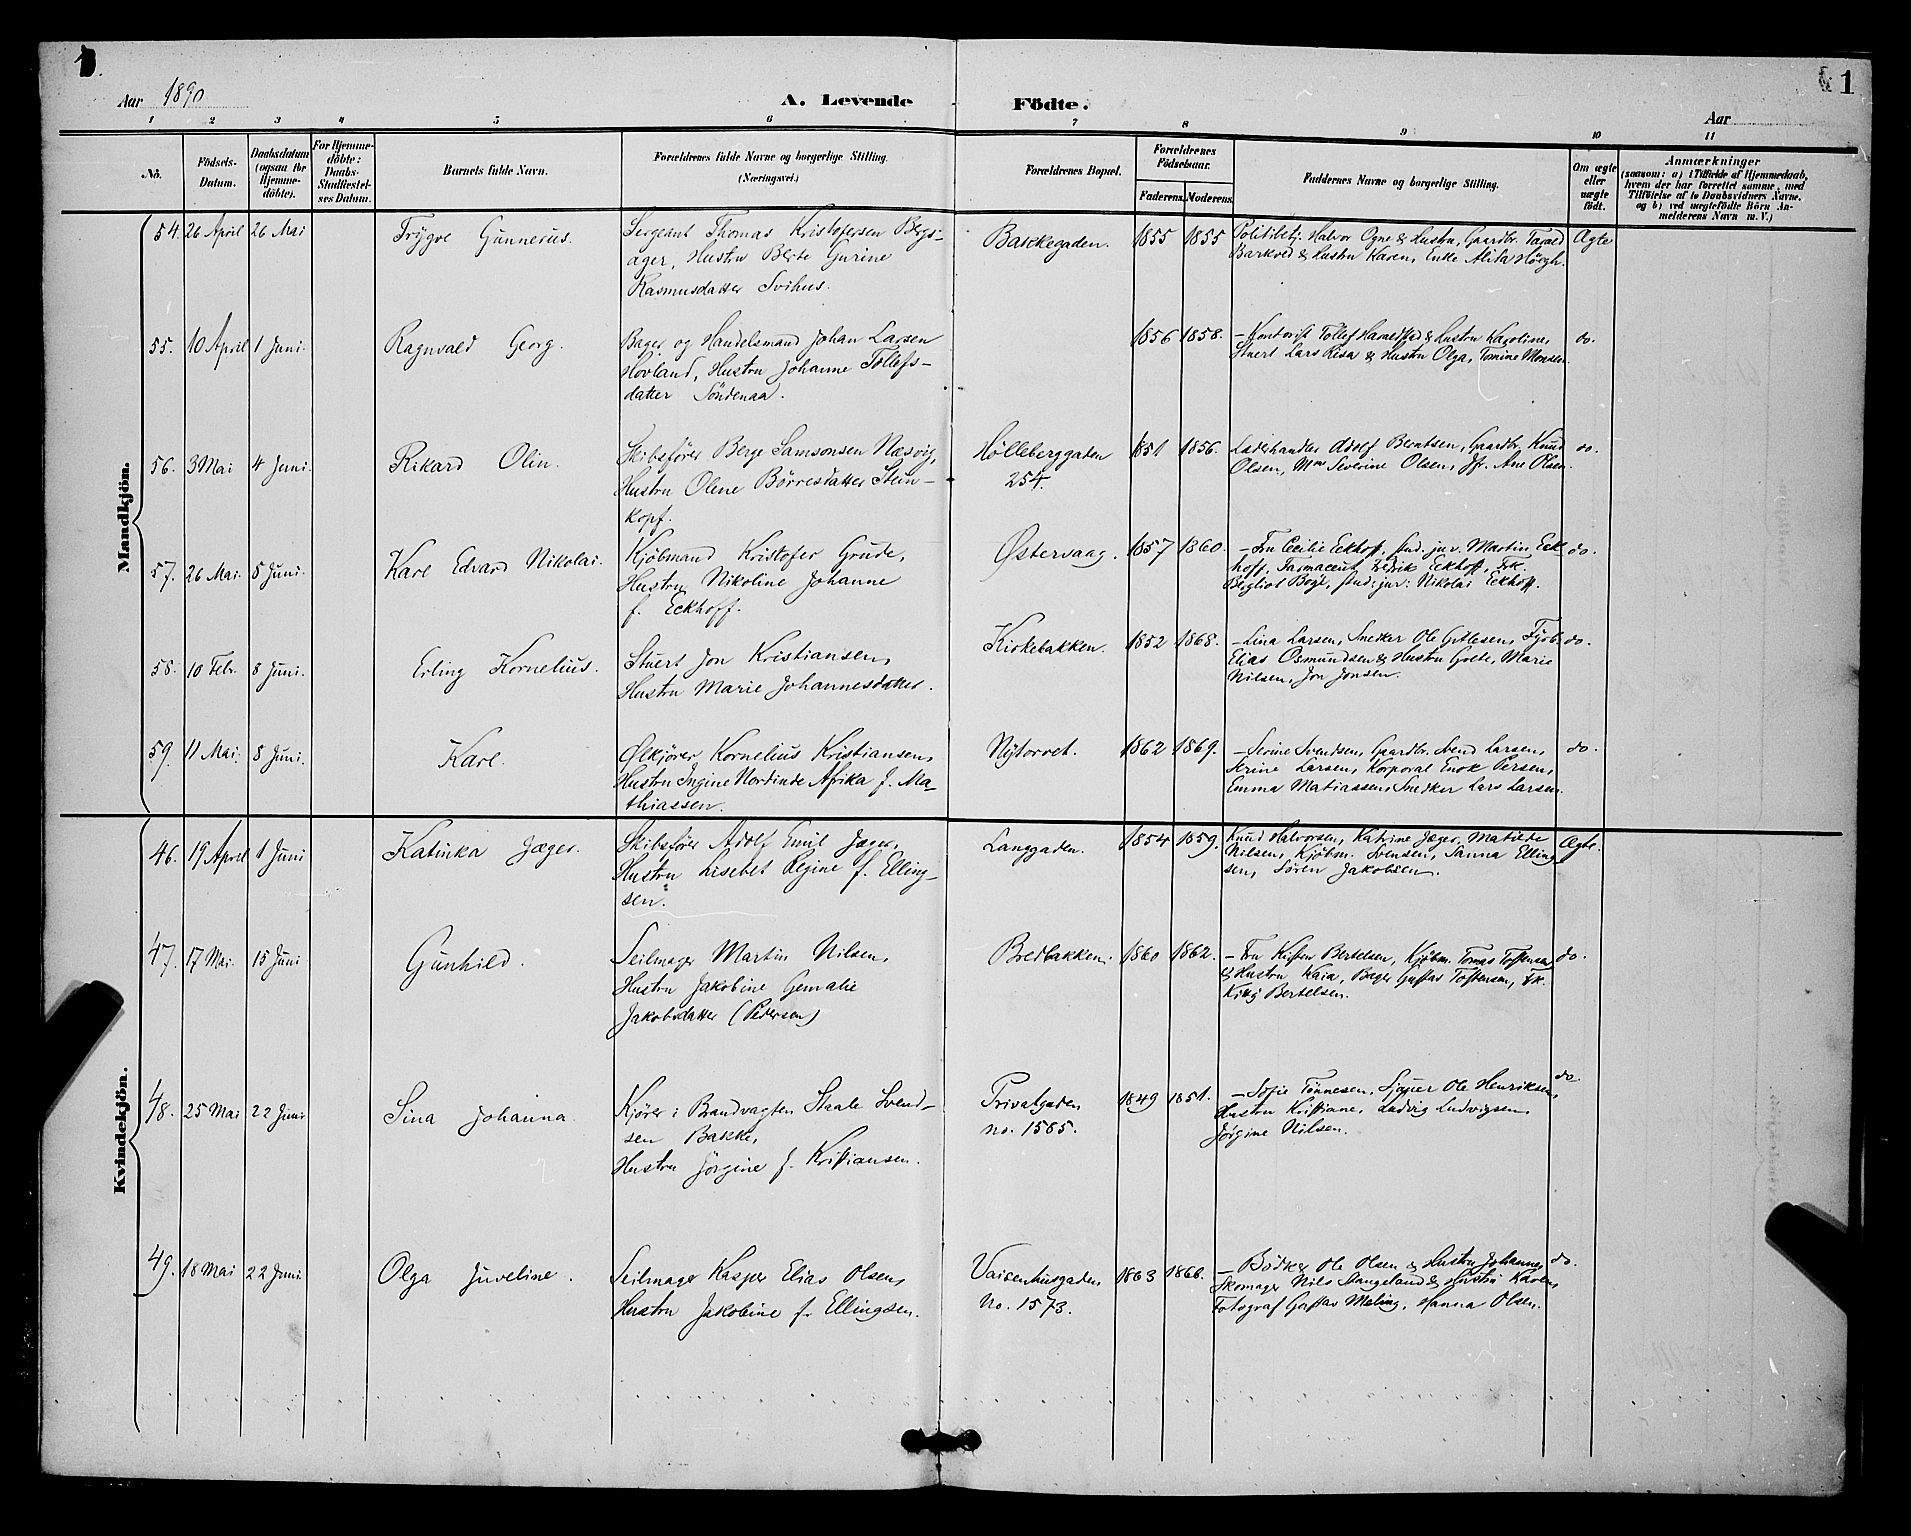 1
1
Aar 1890
A. Levende Födte.
Aar
1 2 3 4 5 6 7 8 9 10 11
No.
Födsels-Datum.
Daabsdatum (ogsaa for Hjemmedöbte).
For Hjemmedöbte: Daabs-Stadfæstelses Datum.
Barnets fulde Navn.
Forældrenes fulde Navne og borgerlige Stilling. (Næringsvei.)
Forældrenes Bopæl.
Forældrenes Födselsaar.
Faderens. Moderens.
Faddernes Navne og borgerlige Stilling.
Om ægte eller uægte födt.
Anmærkninger
(saasom: a) i Tilfælde af Hjemmedaab, hvem der har forrettet samme, med Tilföielse af to Daabsvidners Navne. og b) ved uægtefödte Börn Anmelderens Navn m. V.)
Mandkjön.
54. 26 April 26 Mai Trygve Gunnerus.
Sergeant Thomas Kristofersen Bergs-
ager, Hustru Berte Gurine
Rasmusdatter Svihus.
Bakkegaden. 1855 1855
Politibetj. Halvor Ogne & Hustru, Gaardbr. Tarald
Barkved & Hustru Karen, Enke Alida Høegh.
Ægte
55. 10 April 1 Juni. Ragnvald Georg.
Bager og Handelsmand Johan Larsen
Hovland, Hustru Johanne Tollefs-
datter Söndenaa.
1856 1858.
– Kontorist Tollef Haraldstad & Hustru Karoline,
Stuert Lars Risa & Hustru Olga, Tomine Monsen.
do.
56. 3 Mai 4 Juni. Rikard Olin.
Skibsfører Berge Samsonsen Næsvig,
Hustru Olene Børresdatter Stein-
kopf.
Hølleberggaden
254.
1851 1856.
Ladehandler Adolf Berntsen, Gaardbr. Knud
Olsen, Mm Severine Olsen, Jfr. Ane Olsen.
do.
57. 26 Mai. 5 Juni. Karl Edvard Nikolai.
Kjøbmand Kristofer Grude,
Hustru Nikoline Johanne
f. Eckhoff.
Østervaag. 1857 1860.
– Fru Cecilie Eckhoff, stud. jur. Martin Eck-
hoff, Farmaceut Fredrik Eckhoff, Frk.
Bergliot Bøgl, stud: jur: Nikolai Eckhoff.
do.
58. 10 Febr. 8 Juni. Erling Kornelius.
Stuert Jon Kristiansen,
Hustru Marie Johannesdatter.
Kirkebakken. 1852 1868.
– Lina Larsen, Snedker Ole Gitlesen, Fyrb.
Elias Osmundsen & Hustru Grete, Marie
Nilsen, Jon Jonsen.
do.
59. 11 Mai. 8 Juni. Karl.
Ølkjører Kornelius Kristiansen,
Hustru Ingine Nordinde Afrika f. Ma-
thiassen.
Nytorvet. 1862 1869.
– Serine Svendsen, Gaardbr. Svend Larsen,
Serine Larsen, Korporal Enok Persen,
Emma Matiassen, Snedker Lars Larsen.
do.
Kvindekjön.
46. 19 April 1 Juni Katinka Jæger.
Skibsfører Adolf Emil Jæger,
Hustru Lisebet Regine f. Elling-
sen.
Langgaden. 1854 1859.
Knud Halvorsen, Katrine Jæger, Matilde
Nilsen, Kjøbm. Svensen, Sanna Elling-
sen, Søren Jakobsen.
Ægte.
47. 17 Mai. 15 Juni Gunhild.
Seilmager Martin Nilsen,
Hustru Jakobine Gemalie
Jakobsdatter (Pedersen)
Bredbakken. 1860 1862.
– Fru Kisten Bertelsen, Kjøbm. Tomas Tostensen
& Hustru Kaia, Bager Gustav Tostensen, Frk.
Kitty Bertelsen.
do.
48. 25 Mai 22 Juni Sina Johanna.
Kjører i Brandvagten Staale Svend-
sen Bakke,
Hustru Jørgine f. Kristiansen.
Privatgaden
no. 1585.
1849 1851.
– Sofie Tønnesen, Sjauer Ole Henriksen,
Hustru Kristiane, Ludvig Ludvigsen,
Jørgine Nilsen.
do.
49. 18 Mai 22 Juni. Olga Juveline.
Seilmager Kasper Elias Olsen,
Hustru Jakobine f. Ellingsen.
Vaisenhusgaden
No. 1573.
1863 1866.
– Bødker Ole Olsen & Hustru Johanne,
Skomager Nils Stangeland & Hustru Karen,
Fotograf Gustav Meling, Hanna Olsen.
do.